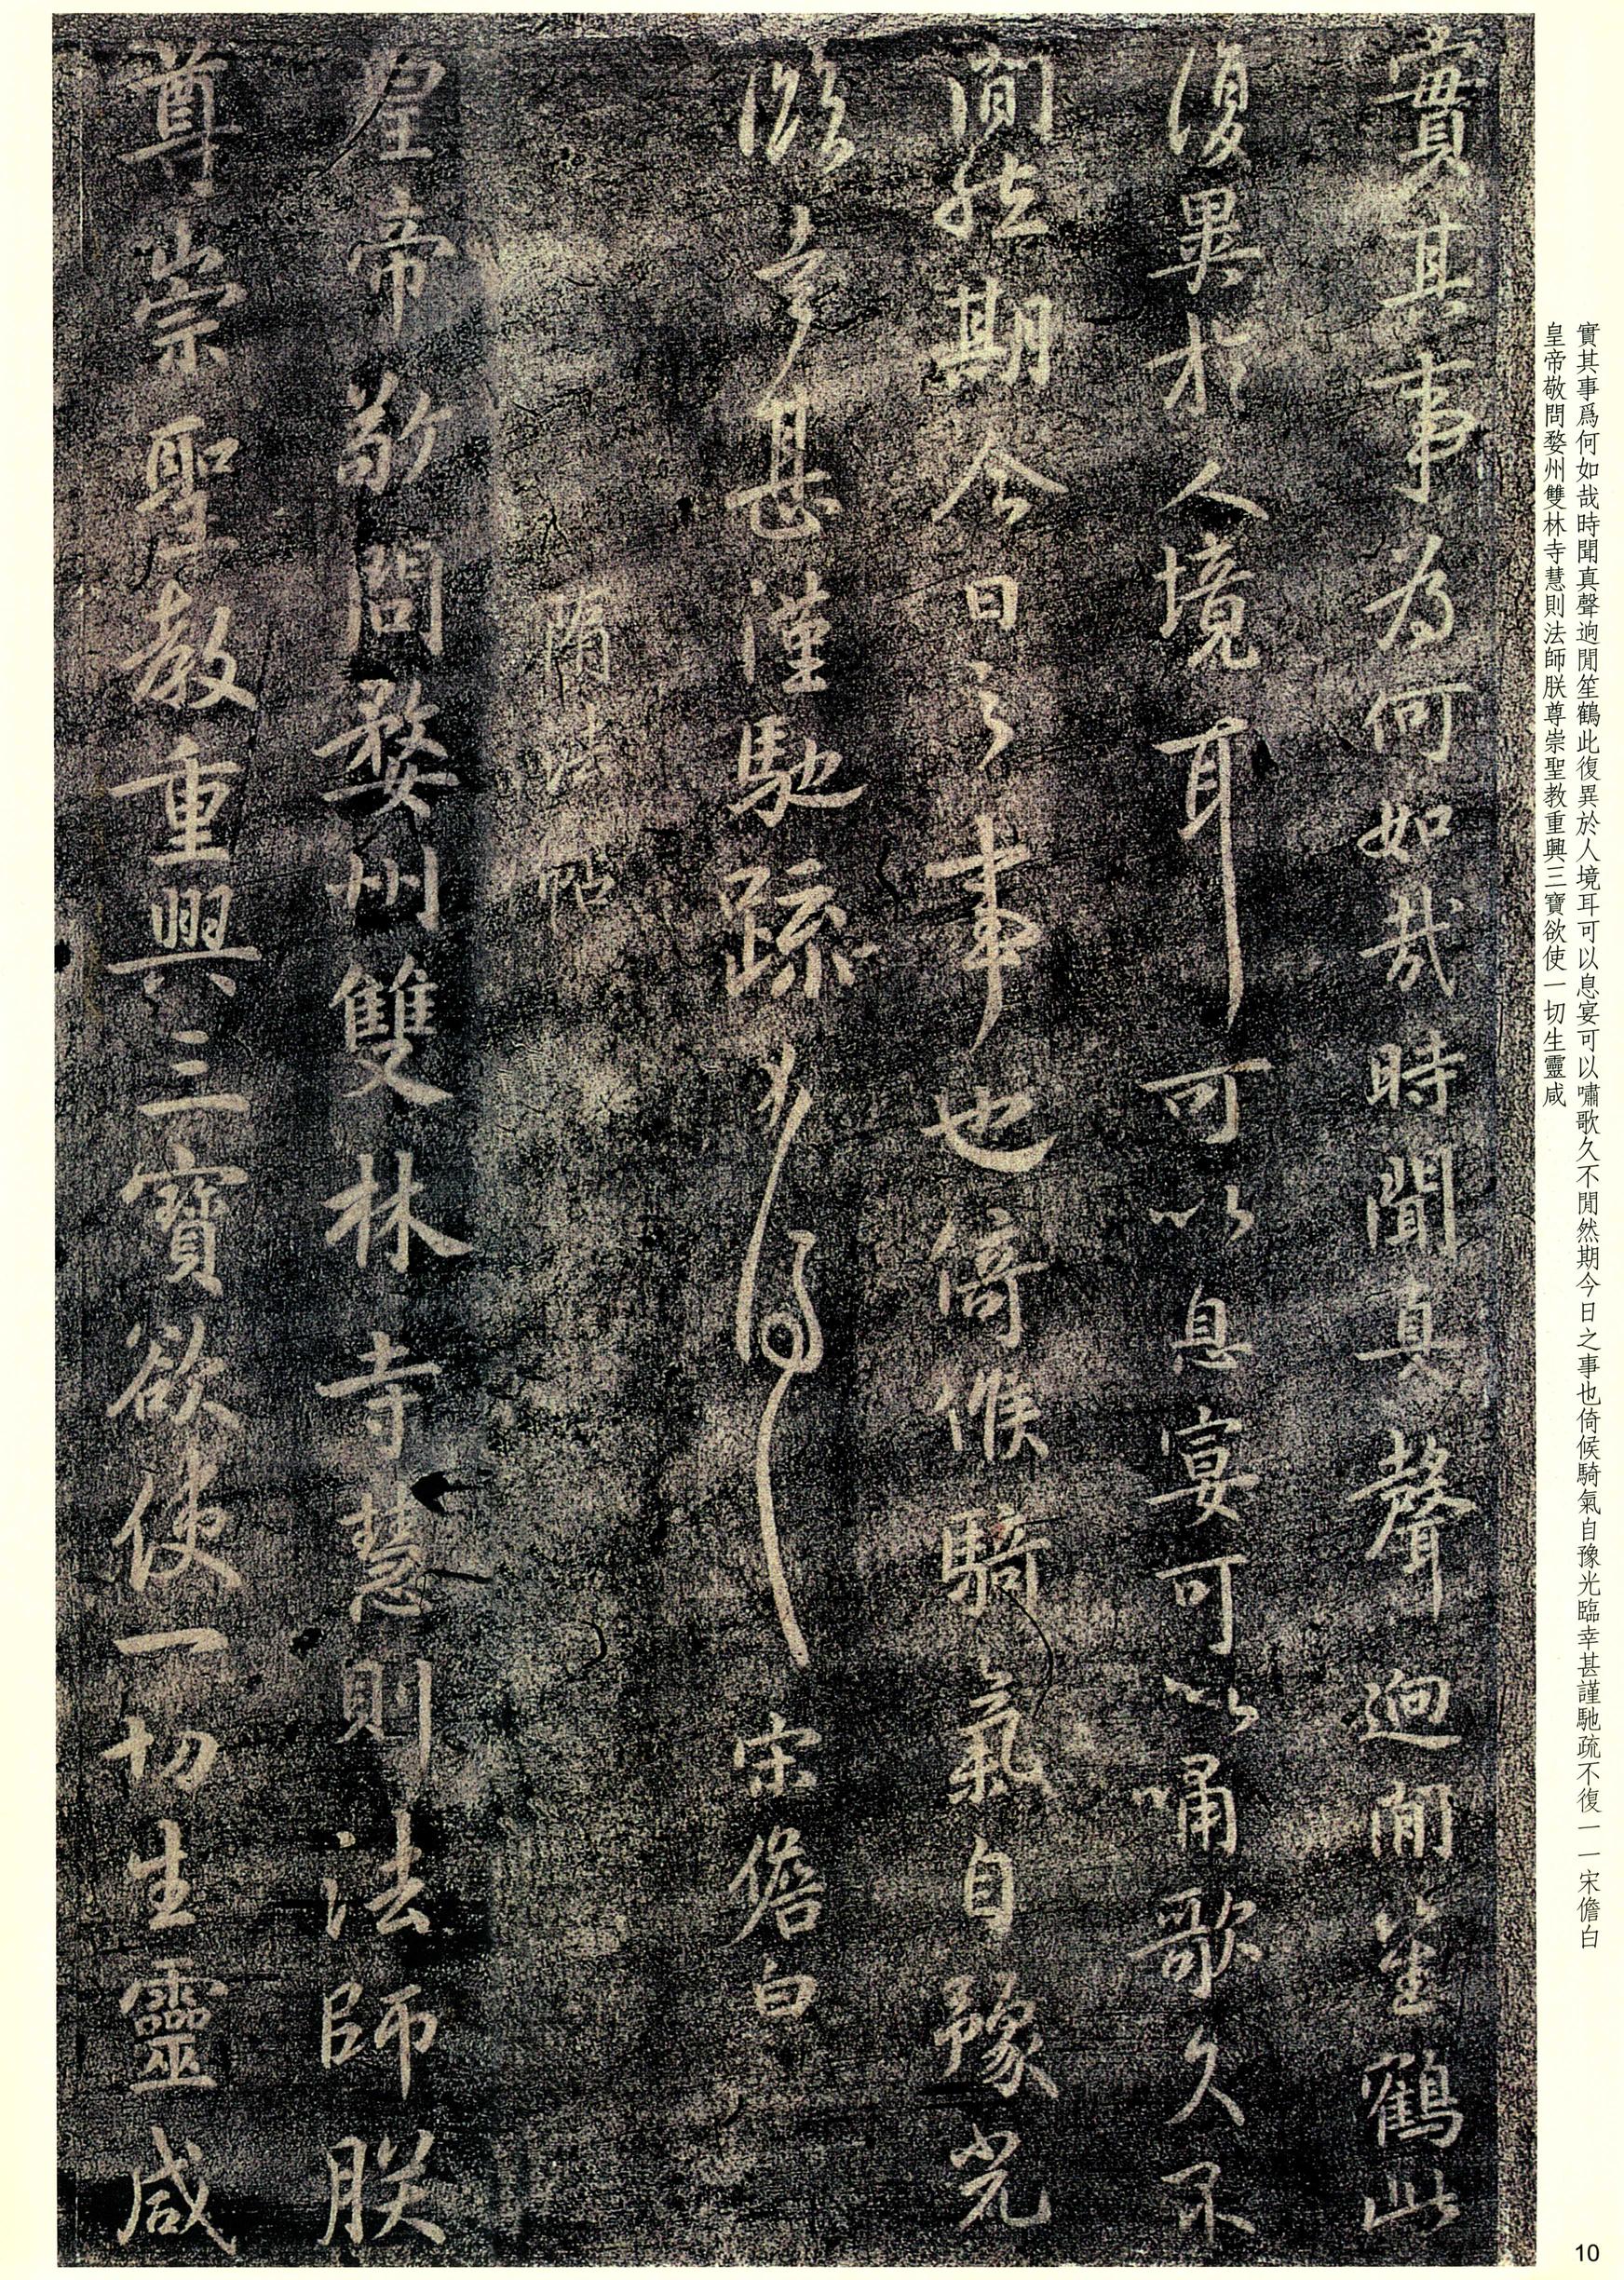 實其事為何如哉時聞真聲逈閒笙鶴此
復異於人境耳可以息宴可以嘯歌久不
閒然期今日之事也倚候騎氣自豫光
臨幸甚謹馳疏不復一一宋儋白
隋法帖
皇帝敬問婺州雙林寺慧則法師朕
尊崇聖教重興三寶欲使一切生靈咸
實其事爲何如哉時聞真聲逈閒笙鶴此復異於人境耳可以息宴可以嘯歌久不閒然期今日之事也倚候騎氣自豫光臨幸甚謹馳疏不復一一宋儋白
皇帝敬問婺州雙林寺慧則法師朕尊崇聖教重興三寶欲使一切生靈咸
10